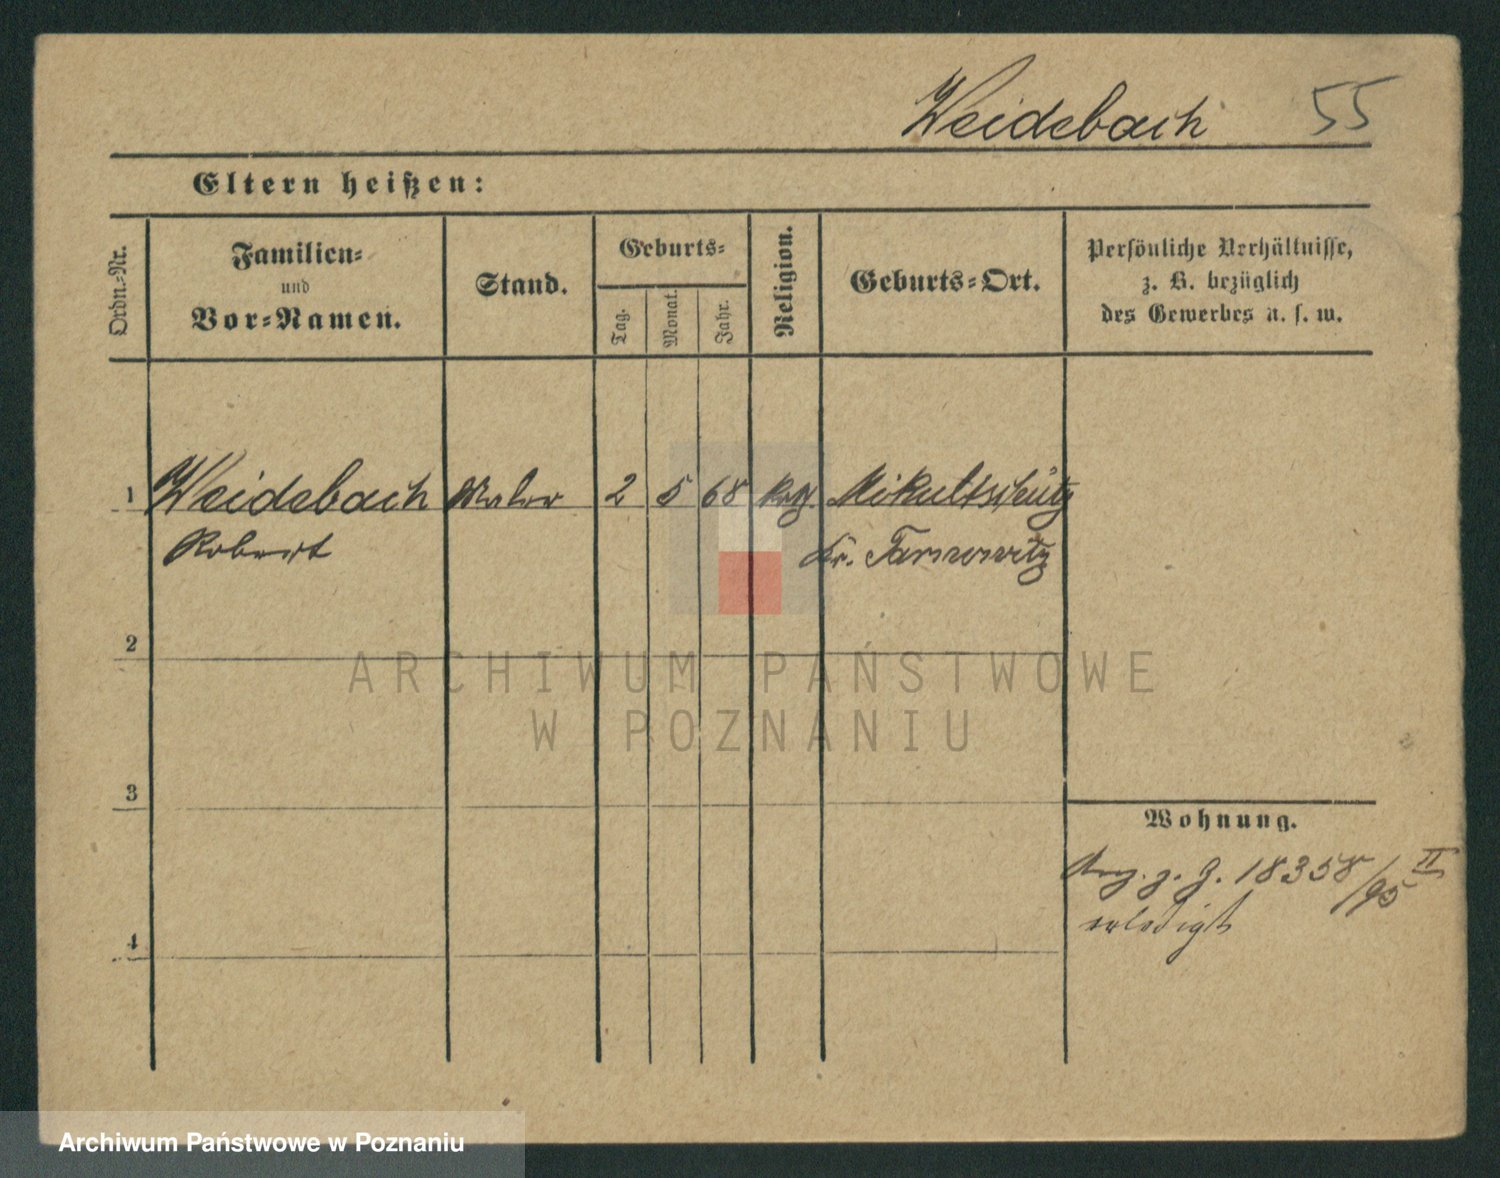 Weidebach 55
Eltern heißen:
Ordn.-Nr.
Familien-
und
Vor-Namen.
Stand.
Geburts-
Tag.
Monat.
Jahr.
Religion.
Geburts-Ort.
Persönliche Verhältnisse,
z. B. bezüglich
des Gewerbes u. s. w.
1 Weidebach Maler 2 5 68 kath. Mikultschütz
Robert Kr. Tarnowitz
2
ARCHIWUM PAŃSTWOWE
W POZNANIU
3
Wohnung.
18358/95 II
erledigt
4
Archiwum Państwowe w Poznaniu